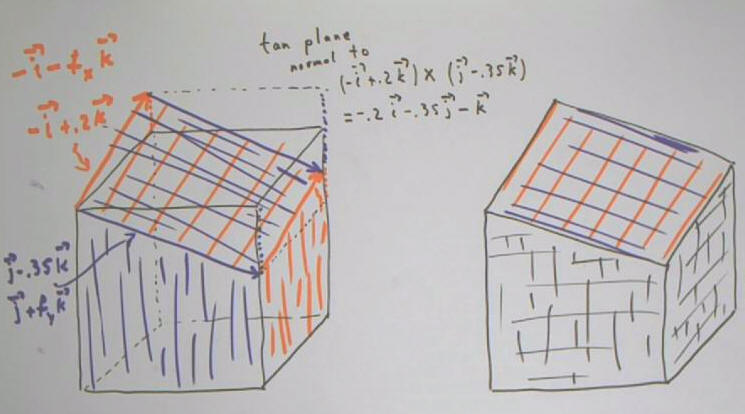 tan plane
normal to
(-i⃗ + .2k⃗) × (j⃗ - .35k⃗)
= -.2 i⃗ - .35 j⃗ - k⃗
-i⃗ - fₓ k⃗
-i⃗ + .2 k⃗
j⃗ - .35 k⃗
j⃗ + f_y k⃗